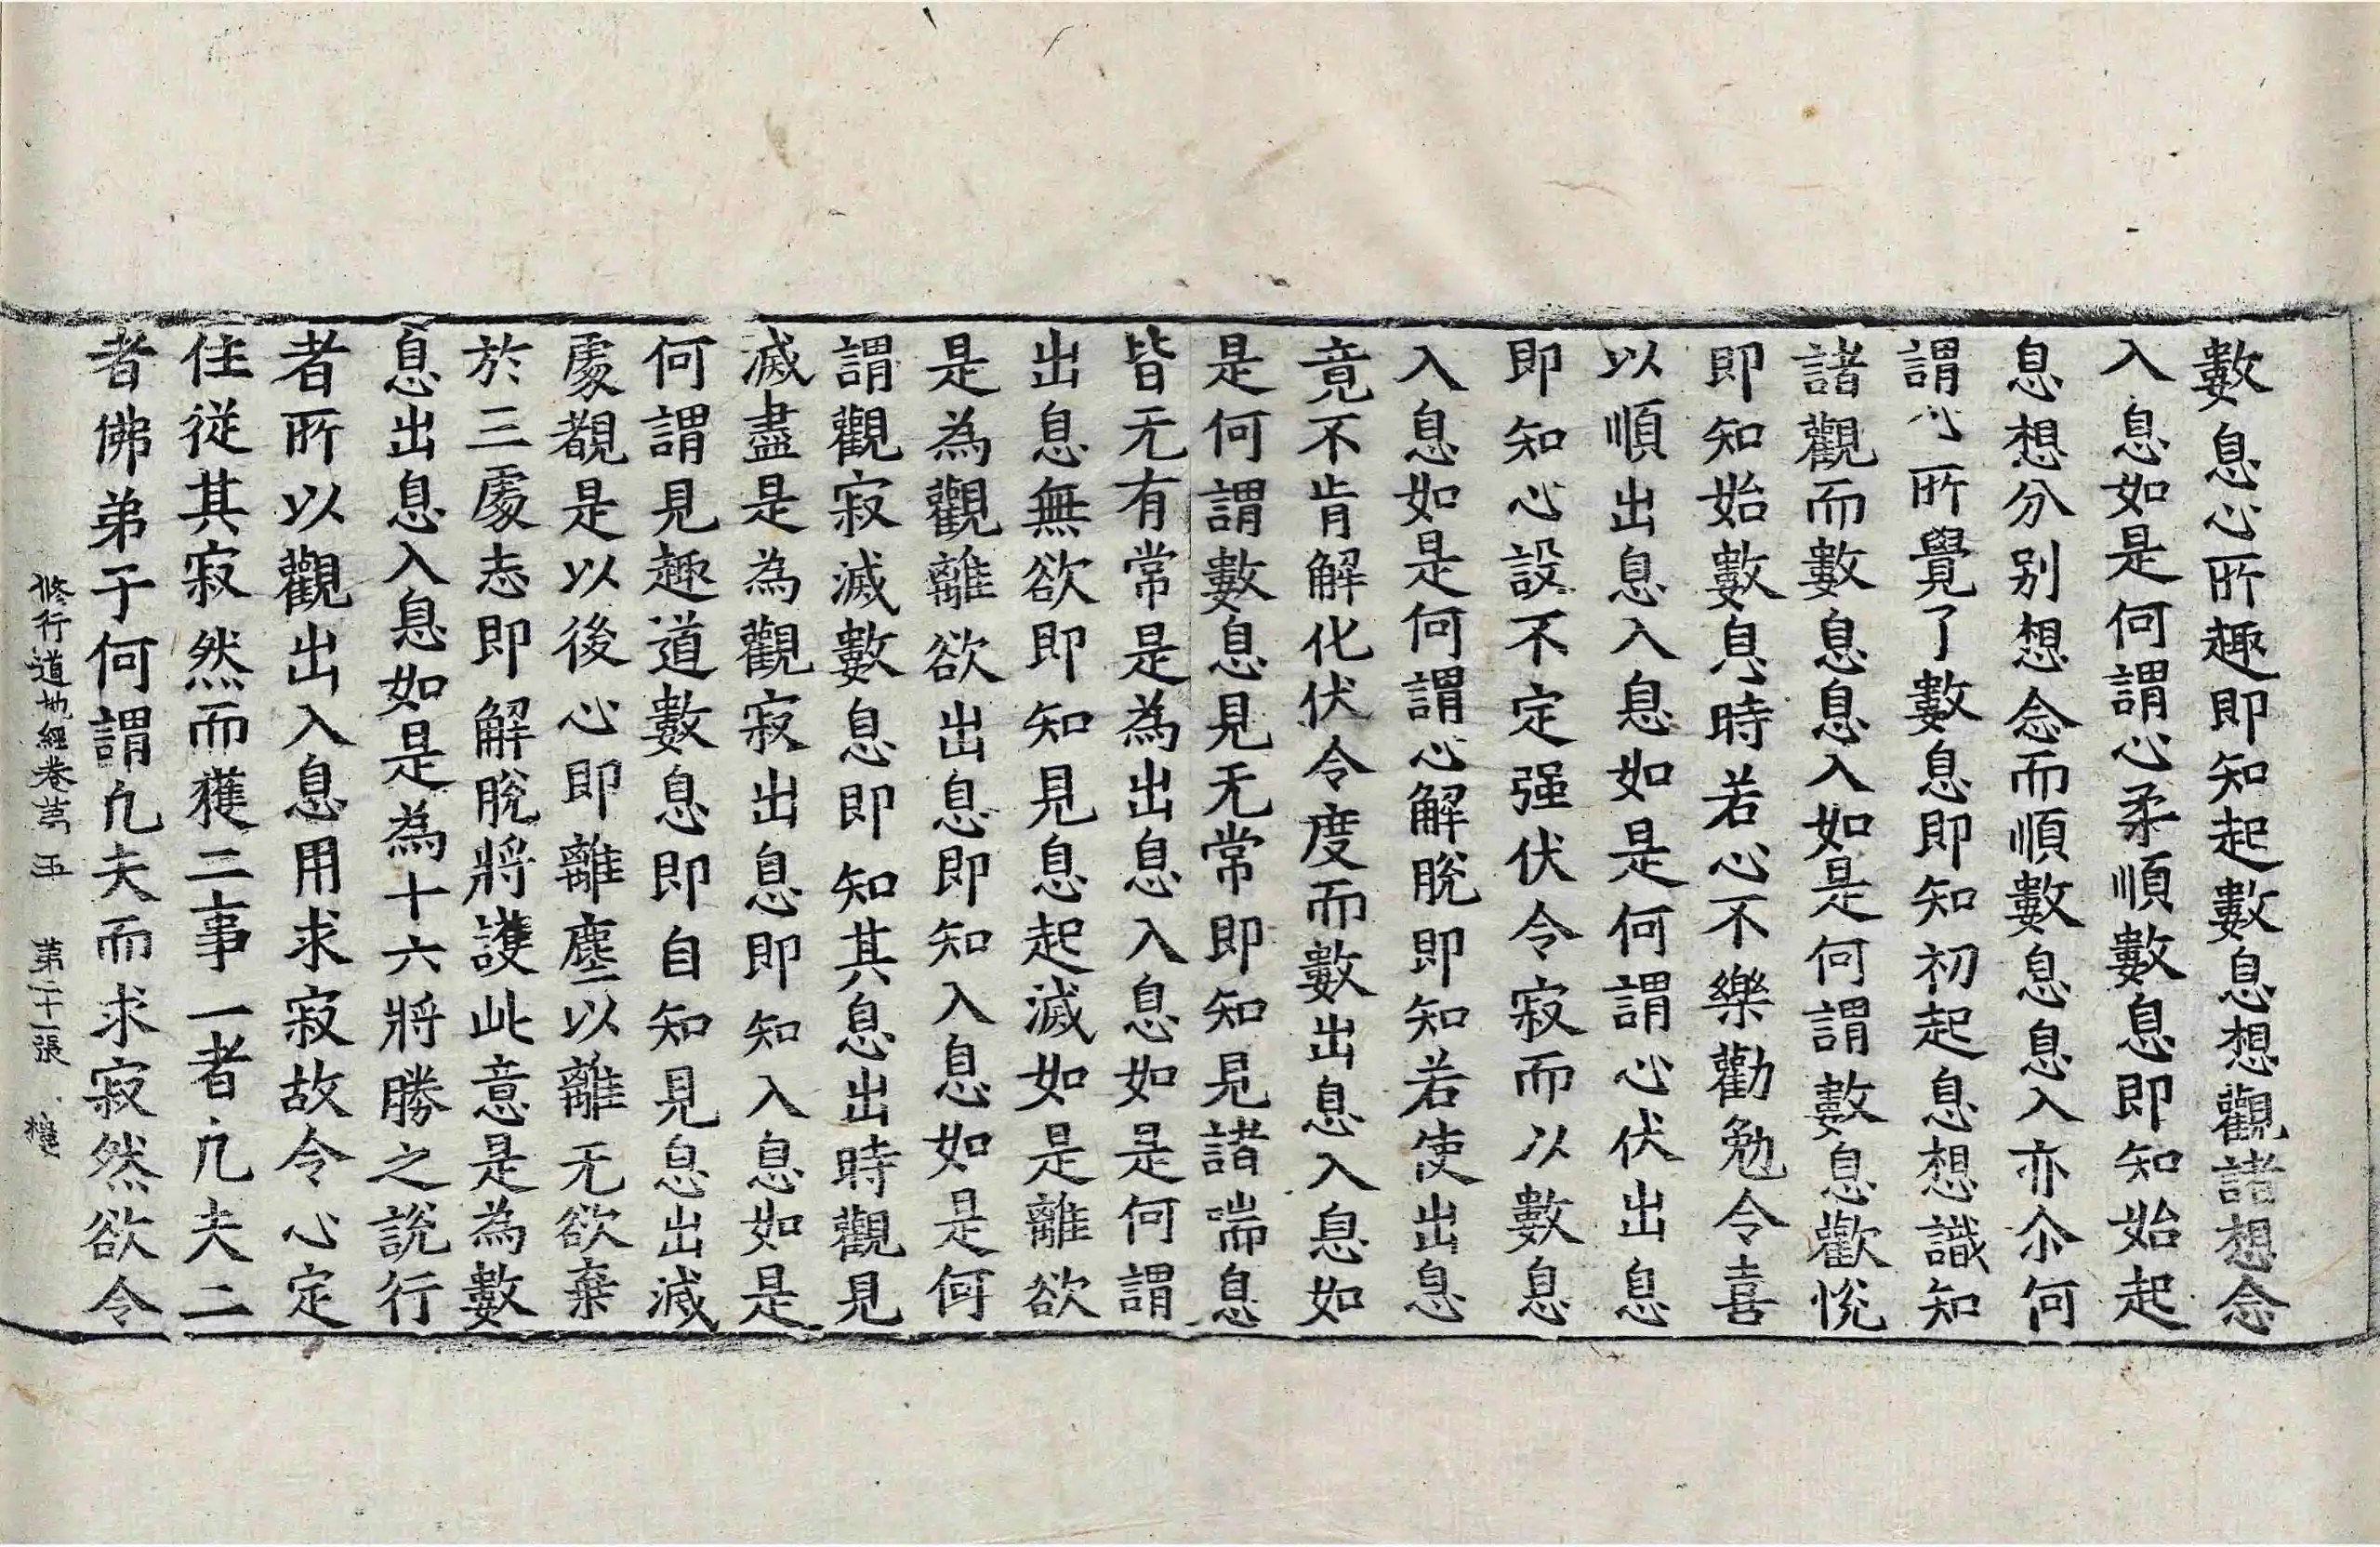 數息心所趣即知起數息想觀諸想念
入息如是何謂心柔順數息即知始起
息想分別想念而順數息息入亦尒何
謂心所覺了數息即知初起息想識知
諸觀而數息息入如是何謂數息歡悅
即知始數息時若心不樂勸勉令喜
以順出息入息如是何謂心伏出息
即知心設不定强伏令寂而以數息
入息如是何謂心解脫即知若使出息
竟不肯解化伏令度而數出息入息如
是何謂數息見无常即知見諸喘息
皆无有常是為出息入息如是何謂
出息無欲即知見息起滅如是離欲
是為觀離欲出息即知入息如是何
謂觀寂滅數息即知其息出時觀見
滅盡是為觀寂出息即知入息如是
何謂見趣道數息即自知見息出滅
處覩是以後心即離塵以離无欲棄
於三處志即解脫將護此意是為數
息出息入息如是為十六將勝之說行
者所以觀出入息用求寂故令心定
住從其寂然而獲二事一者凢夫二
者佛弟子何謂凢夫而求寂然欲令
修行道地經卷苐五 第二十張